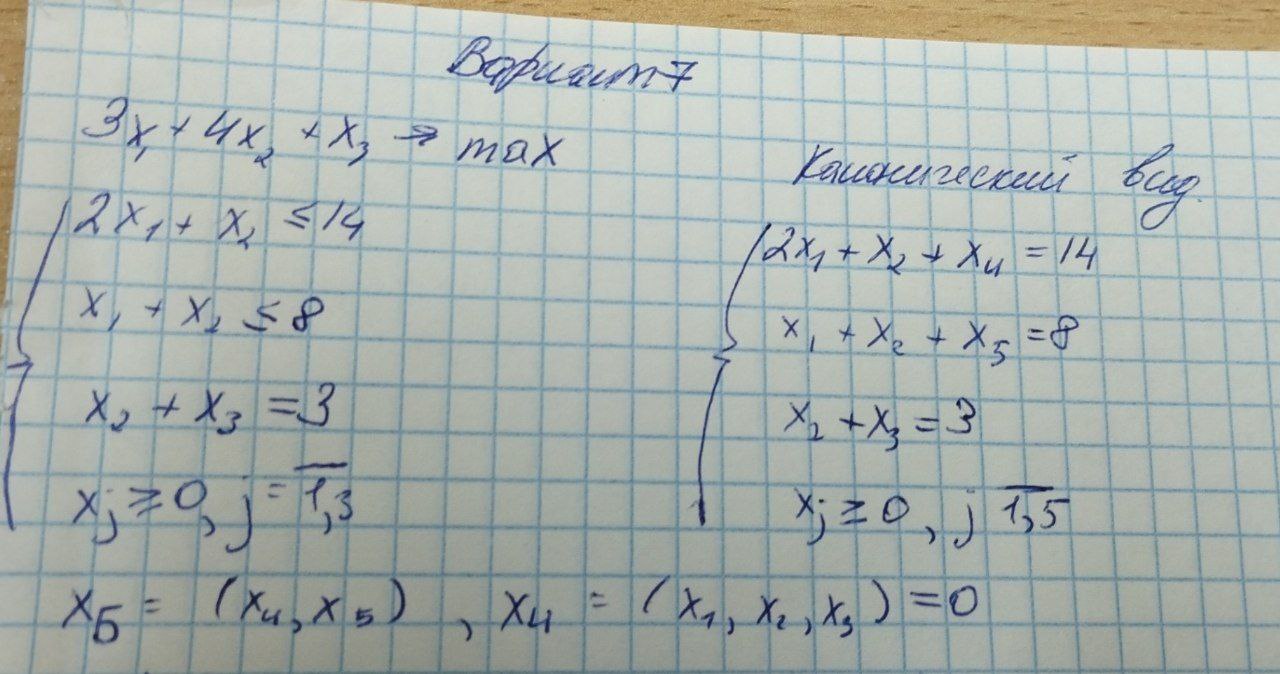 Вариант 7
3x₁ + 4x₂ + x₃ → max
2x₁ + x₂ ≤ 14
x₁ + x₂ ≤ 8
x₂ + x₃ = 3
xⱼ ≥ 0, j = 1,3
Канонический вид.
2x₁ + x₂ + x₄ = 14
x₁ + x₂ + x₅ = 8
x₂ + x₃ = 3
xⱼ ≥ 0, j 1,5
x_Б = (x₄, x₅), x₄ = (x₁, x₂, x₃) = 0